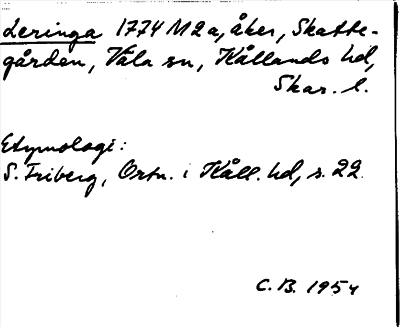 Leringa 1774 M2a, åker, Skatte-
gården, Våla sn, Kållands hd,
Skar. l.
Etymologi:
S. Friberg, Ortn. i Kåll. hd, s. 22.
C. B. 1954